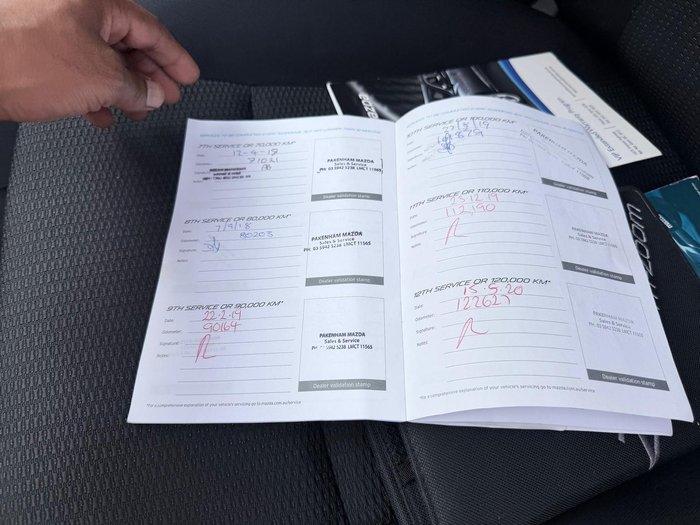 7TH SERVICE OR 70,000 KM*
Date: 12-4-18
71021
PAKENHAM MAZDA
Sales & Service
PH: 03 5942 5238 LMCT 11565
Dealer validation stamp
8TH SERVICE OR 80,000 KM*
Date: 7/9/18
Odometer: 80203
Signature:
Notes:
PAKENHAM MAZDA
Sales & Service
PH: 03 5942 5238 LMCT 11565
Dealer validation stamp
9TH SERVICE OR 90,000 KM*
Date: 22-2-19
Odometer: 90164
Signature:
Notes:
PAKENHAM MAZDA
Sales & Service
PH: 03 5942 5238 LMCT 11565
Dealer validation stamp
*For a comprehensive explanation of your vehicle's servicing go to mazda.com.au/service
10TH SERVICE OR 100,000 KM*
Dealer validation stamp
11TH SERVICE OR 110,000 KM*
Date: 23.12.19
Odometer: 112,190
Signature:
Notes:
Dealer validation stamp
12TH SERVICE OR 120,000 KM*
Date: 15.5.20
Odometer: 122627
Signature:
Notes:
PAKENHAM MAZDA
Sales & Service
PH: 03 5942 5238 LMCT 11565
Dealer validation stamp
*For a comprehensive explanation of your vehicle's servicing go to mazda.com.au/service
VIP Extended Warranty Program